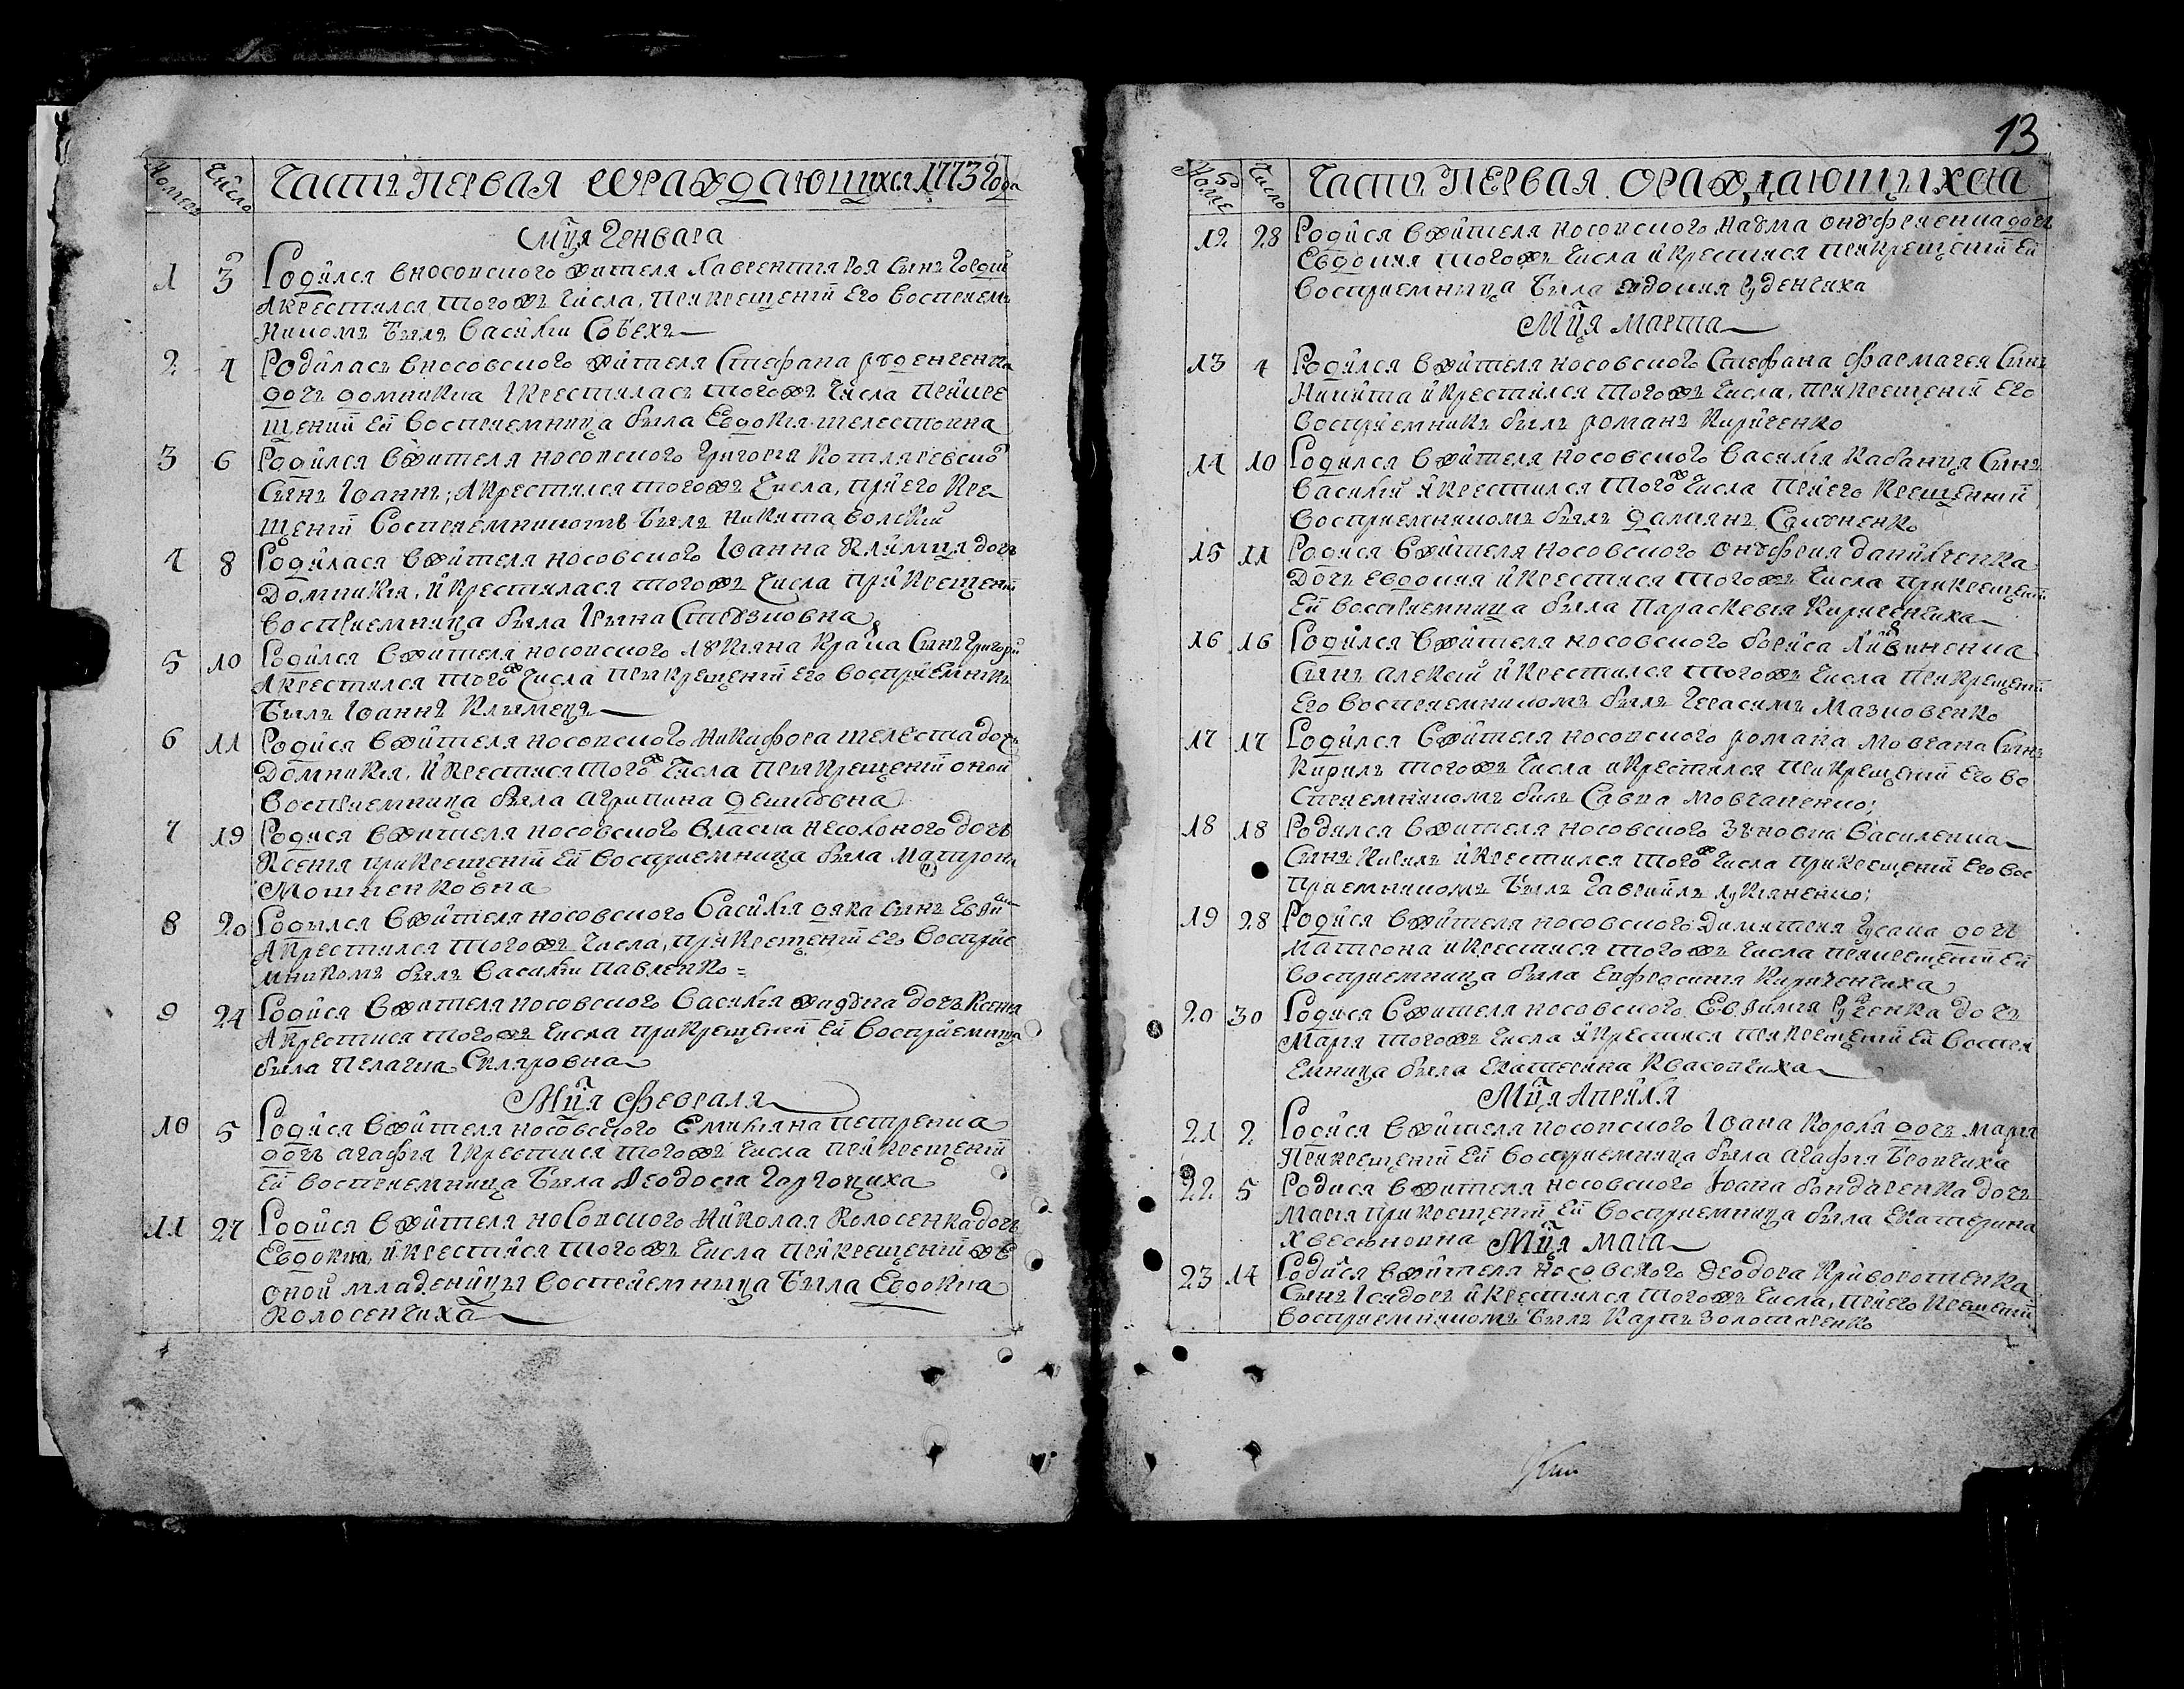 Номеръ Число Часть первая ѡ раждающихся 1773 года
Мцⷭ҇а Генвара
1 3 Родился в носовского жителя Лаврентия Роя сынъ Гордѣй
а крестился того жъ числа, при крещенїи его восприем
никомъ былъ Василий Собехъ
2 4 Родилась в носовского жителя Стефана Руденченка
дочъ Домникиа і крестиласъ того жъ числа при кре
щенїи ей восприемница была Евдокия Шелестовна
3 6 Родился в жителя носовского Григория Котляревско
сынъ Іоаннъ; а крестился того жъ числа, при его кре
щенїи восприемникомъ былъ Никита Волский
4 8 Родилася в жителя носовского Іоанна Климця дочъ
Домникия, и крестилася того жъ числа при крещенїи
восприемница была Ірина
5 10 Родился в жителя носовского Лукяна сынъ Григорий
а крестился того ж числа при крещенїи его восприемникъ
былъ Іоаннъ Климецъ
6 11 Родися в жителя носовского Никифора Шелеста дочъ
Домникия, и крестися того ж числа при крещенїи оной
восприемница была Агрипина Демидовна
7 19 Родися в жителя носовского Власиа Несолоного дочъ
Ксения при крещенїи ей восприемница была Матрона
Мошненковна
8 20 Родился в жителя носовского Василия Дяка сынъ
а крестился того жъ числа, при крещенїи его восприе
мникомъ былъ Василий Павленко =
9 24 Родися в жителя носовского Василия дочъ Ксения
а крестися того жъ числа при крещенїи ей восприемница
была Пелагиа Скляровна
Мцⷭ҇а Февраля
10 5 Родися в жителя носовского Емилияна Петренка
дочъ Агафия і крестися того жъ числа при крещенїи
ей восприемница была Ѳеодосия
11 27 Родися в жителя носовского Николая Колосенка дочъ
Евдокиа, и крестися того жъ числа при крещенїи же
оной младеницы восприемница была Евдокиа
Колосенчиха
13
Номеръ Число Часть первая о раждающихся
12 28 Родися в жителя носовского Наума Онуфриенка дочъ
Евдокия того жъ числа и крестися при крещенїи ей
восприемница была Евдокия Руденчиха
Мцⷭ҇а Марта
13 4 Родился в жителя носовского Стефана Фармагея сынъ
Никита и крестился того жъ числа, при крещенїи его
восприемникъ былъ Романъ Кириченко
14 10 Родился в жителя носовского Василия Кабанця сынъ
Василий и крестился того ж числа при его крещенїи
восприемникомъ былъ Дамиянъ Самоненко
15 11 Родися в жителя носовского Онуфрия Данилченка
дочъ Евдокия и крестися того жъ числа при крещенїи
ей восприемница была Параскевия Кириченчиха
16 16 Родился в жителя носовского Бориса
сынъ Алексий и крестился того жъ числа при крещенїи
его восприемникомъ былъ Герасимъ Мазновенко
17 17 Родился в жителя носовского Романа Мовчана сынъ
Кирилъ того жъ числа и крестился при крещенїи его во
сприемникомъ былъ Савка Мовчаненко;
18 18 Родился в жителя носовского Зѣновиа Василенка
сынъ Кирилъ и крестился того ж числа при крещенїи его вос
приемникомъ былъ Гавриилъ Лукяненко;
19 28 Родися в жителя носовского Димитрия Гусака дочъ
Матрона и крестися того жъ числа при крещенїи ей
восприемница была Евфросиния Кириченчиха
20 30 Родися в жителя носовского Евфимия дочъ
Мария того жъ числа и крестися при крещенїи ей воспри
емница была Екатерина Квасовчиха
Мцⷭ҇а Априля
21 2 Родися в жителя носовского Іоана Короля дочъ Мария
при крещенїи ей восприемница была Агафия
22 5 Родися в жителя носовского Іоана Бондаренка дочъ
Мария при крещенїи ей восприемница была Екатерина
Хвесюновна Мцⷭ҇а Маія
23 14 Родился в жителя носовского Ѳеодора Криворотенка
сынъ Ісидоръ и крестился того жъ числа, при его крещенїи
восприемникомъ былъ Карпъ Золотаренко